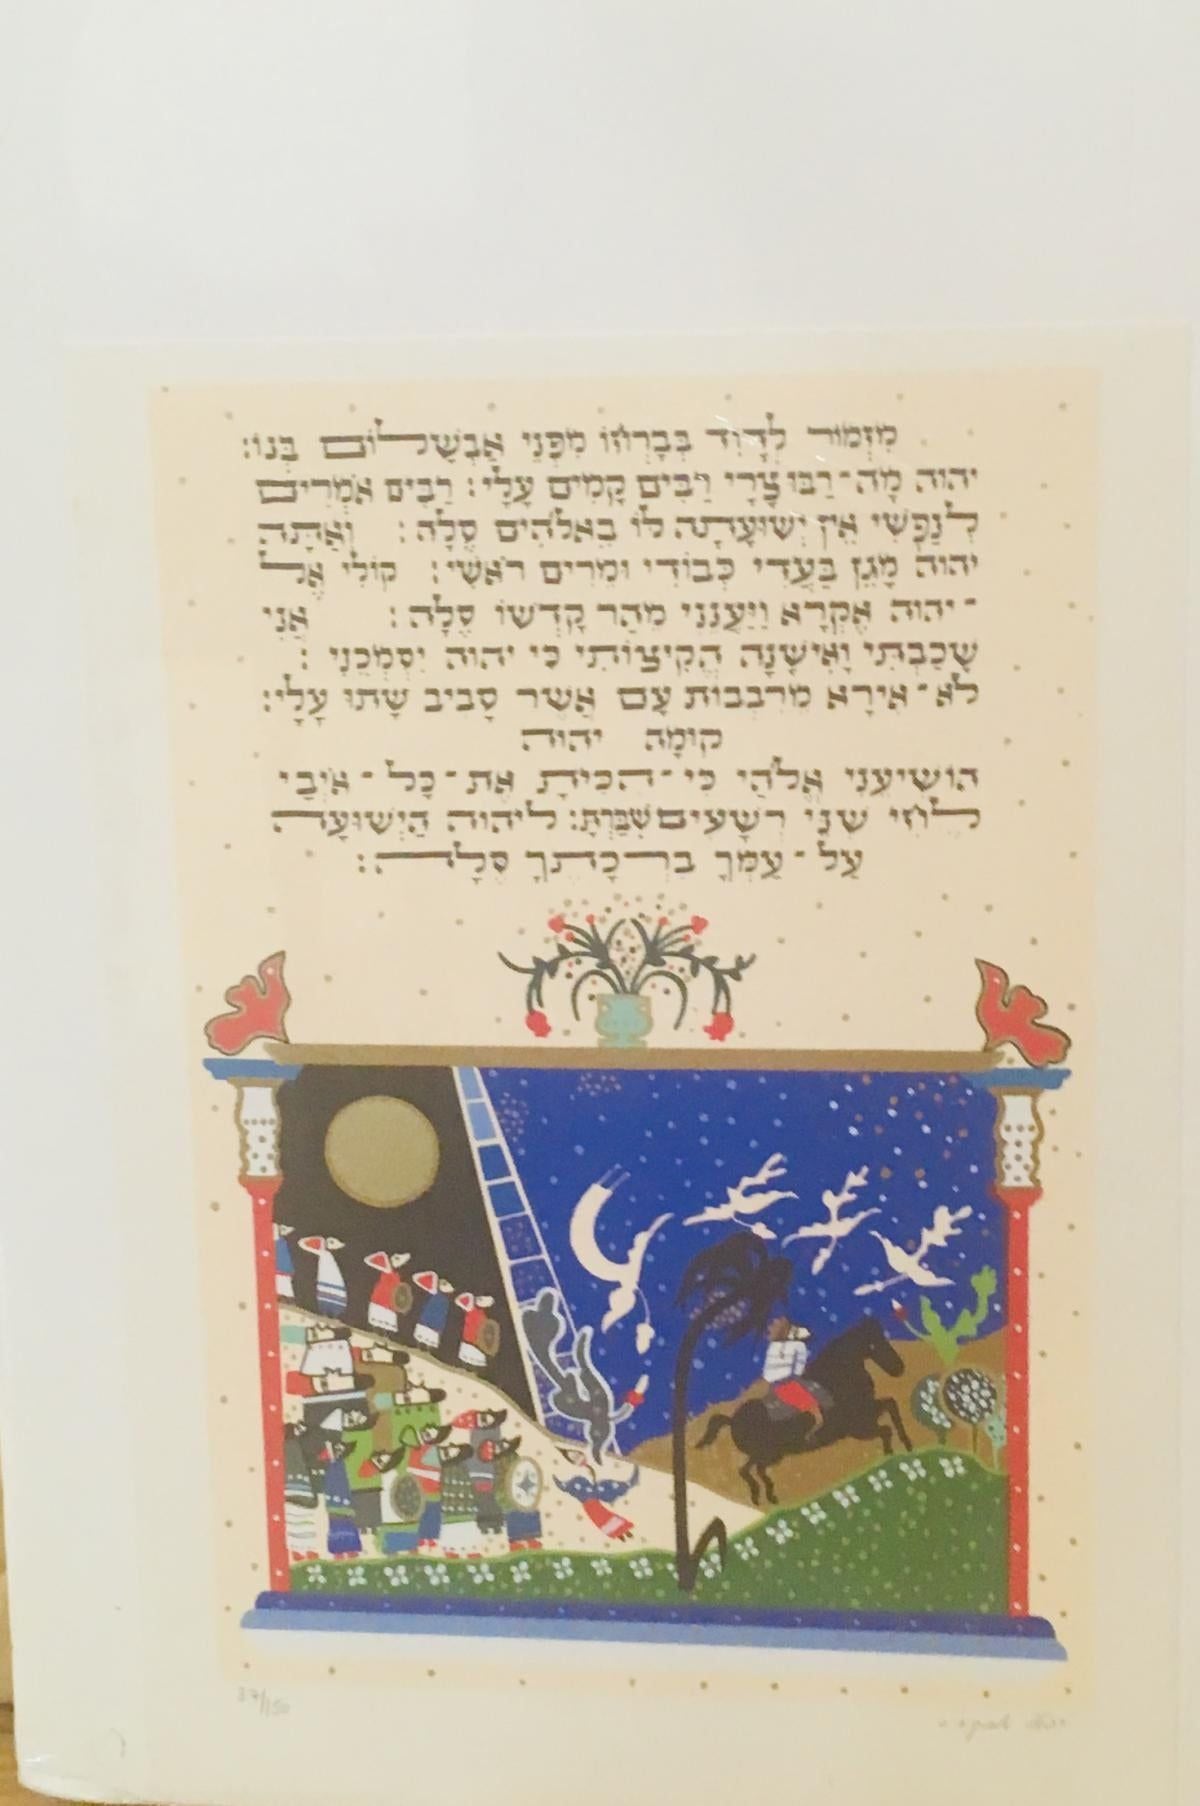 מִזְמוֹר לְדָוִד בְּבָרְחוֹ מִפְּנֵי אַבְשָׁלוֹם בְּנוֹ:
יהוה מָה־רַבּוּ צָרָי רַבִּים קָמִים עָלָי: רַבִּים אֹמְרִים
לְנַפְשִׁי אֵין יְשׁוּעָתָה לּוֹ בֵאלֹהִים סֶלָה: וְאַתָּה
יהוה מָגֵן בַּעֲדִי כְּבוֹדִי וּמֵרִים רֹאשִׁי: קוֹלִי אֶל
־יהוה אֶקְרָא וַיַּעֲנֵנִי מֵהַר קָדְשׁוֹ סֶלָה: אֲנִי
שָׁכַבְתִּי וָאִישָׁנָה הֱקִיצוֹתִי כִּי יהוה יִסְמְכֵנִי:
לֹא־אִירָא מֵרִבְבוֹת עָם אֲשֶׁר סָבִיב שָׁתוּ עָלָי:
קוּמָה יהוה
הוֹשִׁיעֵנִי אֱלֹהַי כִּי־הִכִּיתָ אֶת־כָּל־אֹיְבַי
לֶחִי שִׁנֵּי רְשָׁעִים שִׁבַּרְתָּ: לַיהוה הַיְשׁוּעָה
עַל־עַמְּךָ בִרְכָתֶךָ סֶּלָה:
37/150